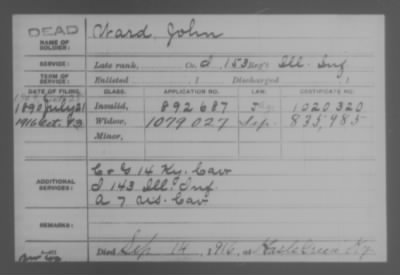 DEAD
NAME OF SOLDIER: Ward, John
SERVICE: Late rank, Co. I, 153 Reg't Ill. Inf
TERM OF SERVICE: Enlisted , 1 Discharged , 1
DATE OF FILING. CLASS. APPLICATION NO. LAW. CERTIFICATE NO.
1890 July 21 Invalid, 892687 1020320
1916 Oct. 23 Widow, 1079027 835,985
Minor,
ADDITIONAL SERVICES:
C & G 14 Ky. Cav
I 143 Ill. Inf.
A 7 U.S. Cav
REMARKS:
Died Sep 14, 1916, at Ky.